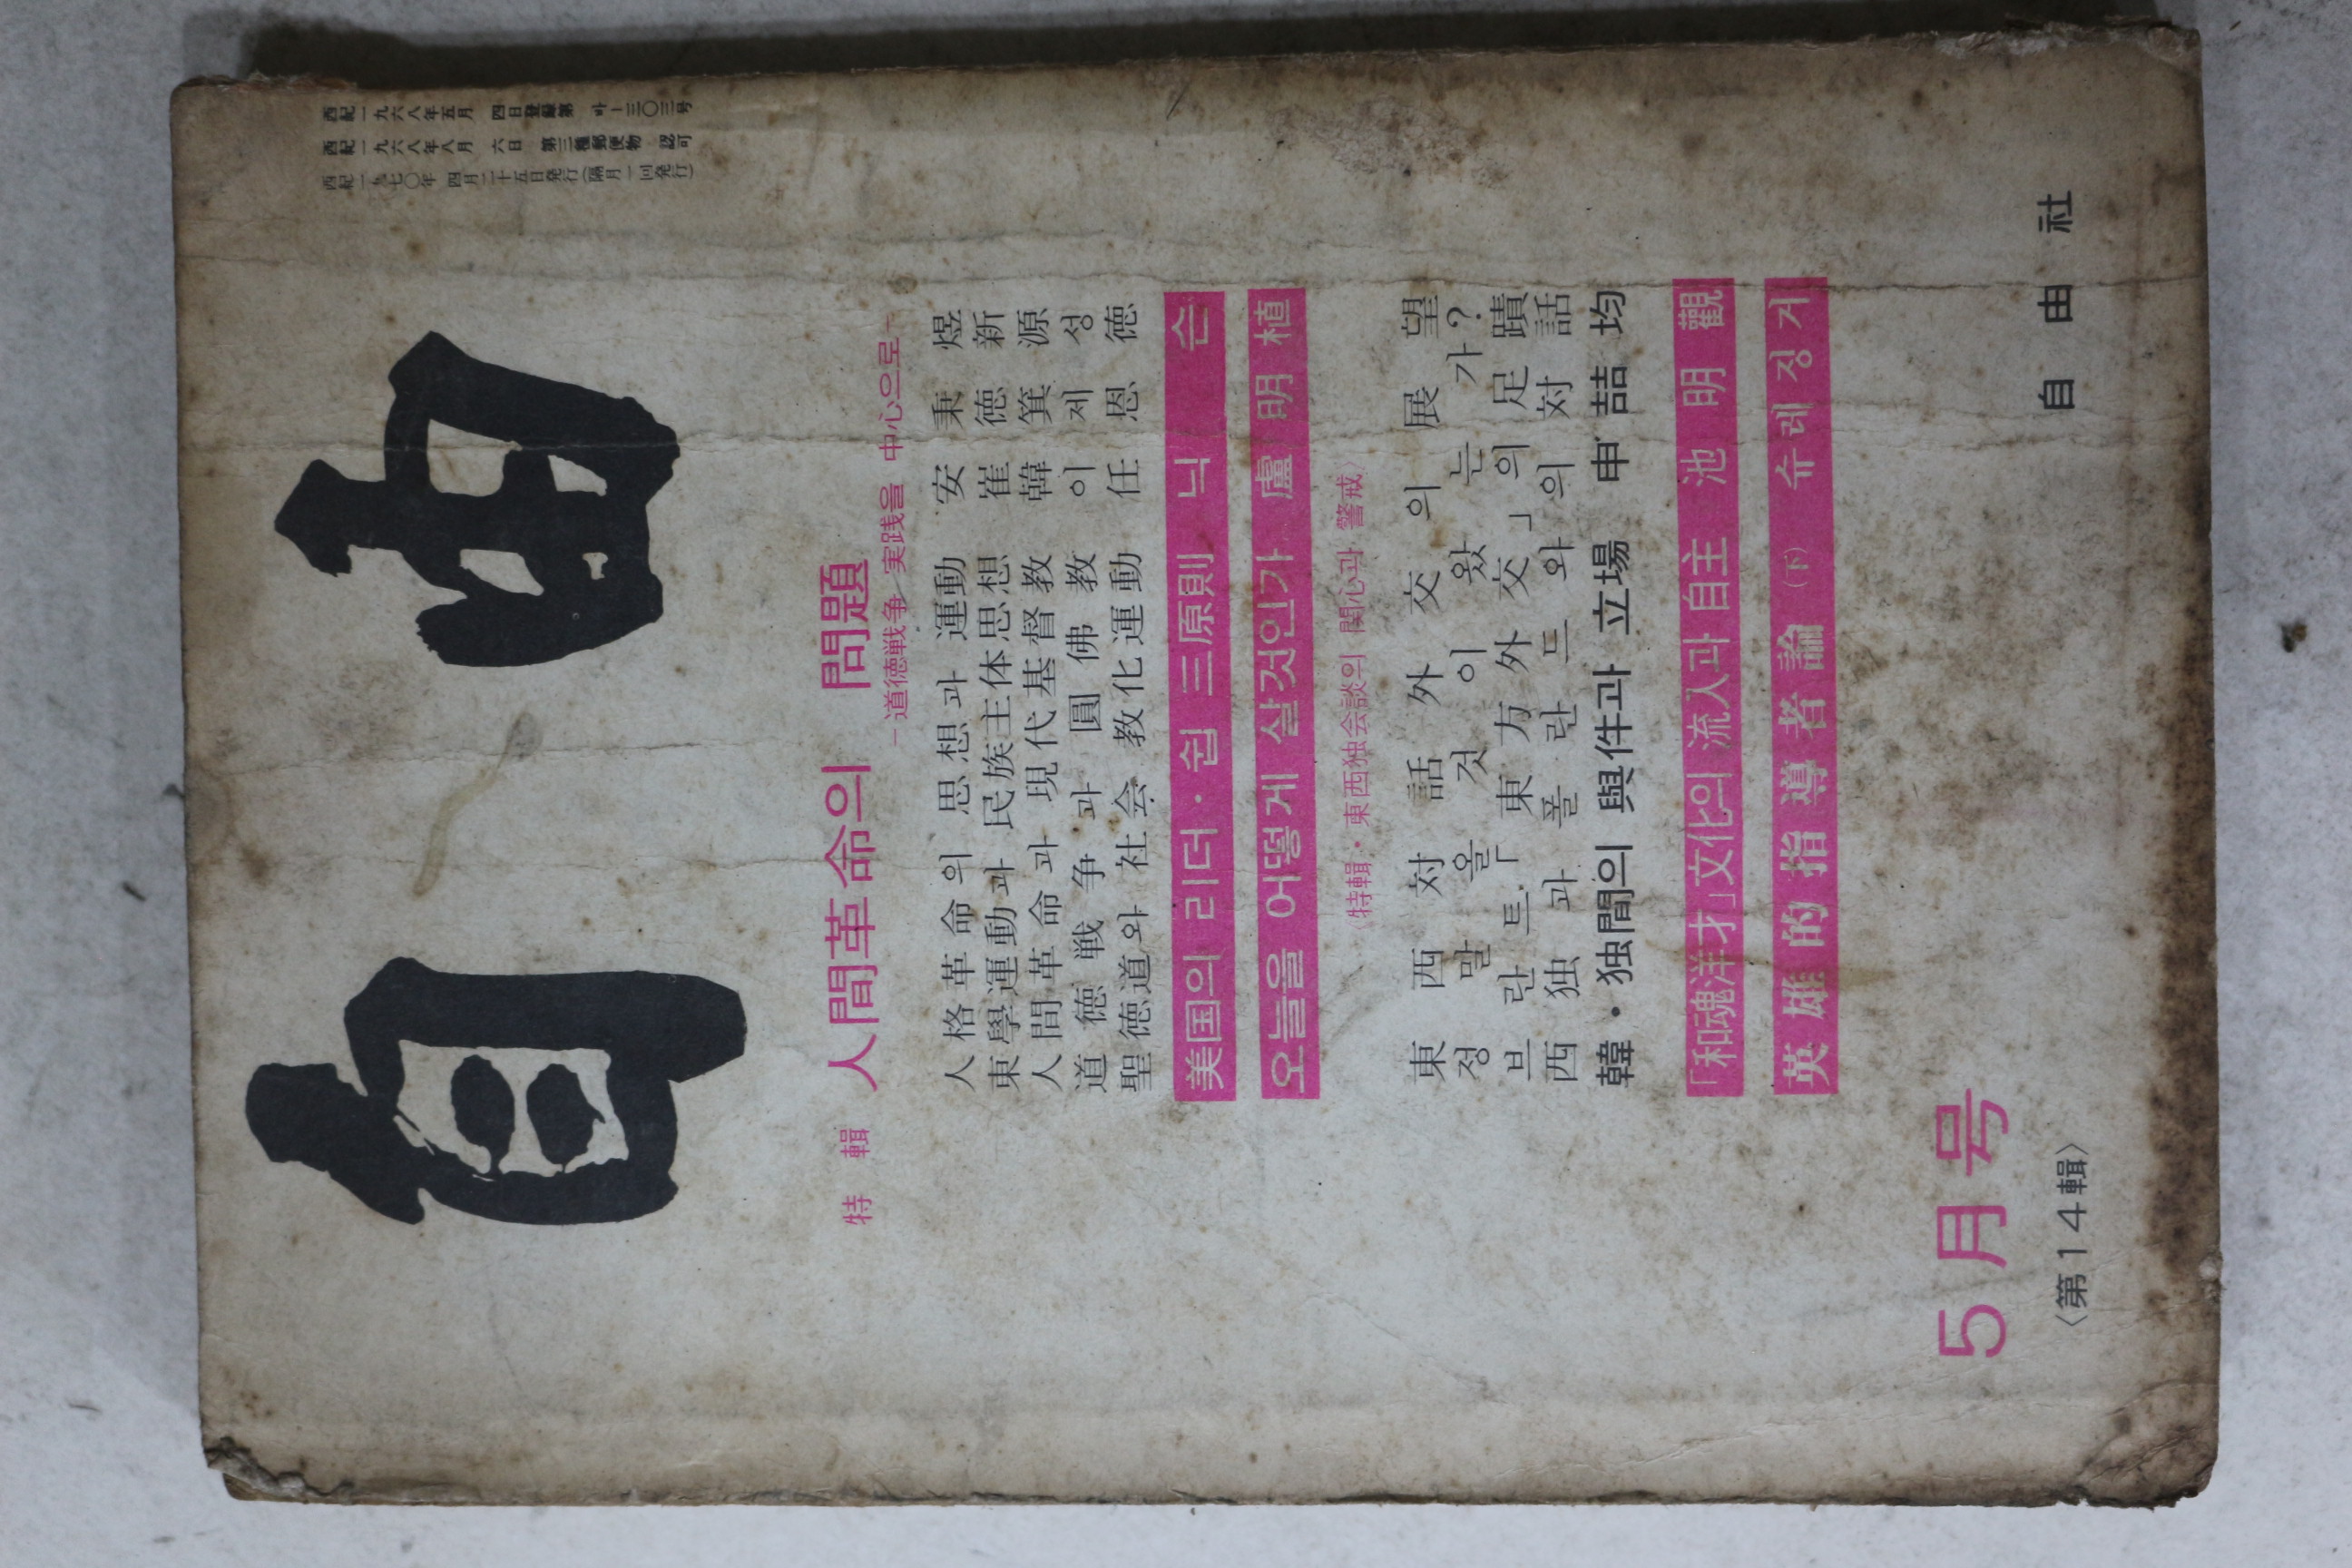 西紀一九六八年五月 四日登録第 마—三〇三号
西紀一九六八年八月 六日 第三種郵便物 認可
西紀一九七〇年 四月二十五日発行(隔月一回発行)
自由
特輯 人間革命의 問題
—道徳戦争 実践을 中心으로—
人格革命의 思想과 運動 安秉煜
東學運動과 民族主体思想 崔徳新
人間革命과 現代基督教 韓箕源
道徳戦争과 圓佛教 이제성
聖徳道와 社会教化運動 任恩徳
美国의 리더·쉽 三原則 닉슨
오늘을 어떻게 살것인가 盧明植
〈特輯·東西独会談의 関心과 警戒〉
東西対話外交의 展望
정말 올 것이 왔는가?
브란트「東方外交」의 足蹟
西独과 폴란드와의 対話
韓·独間의 與件과 立場 申喆均
「和魂洋才」文化의 流入과 自主 池明觀
英雄的指導者論(下) 슈레징거
5月号
〈第14輯〉
自由社